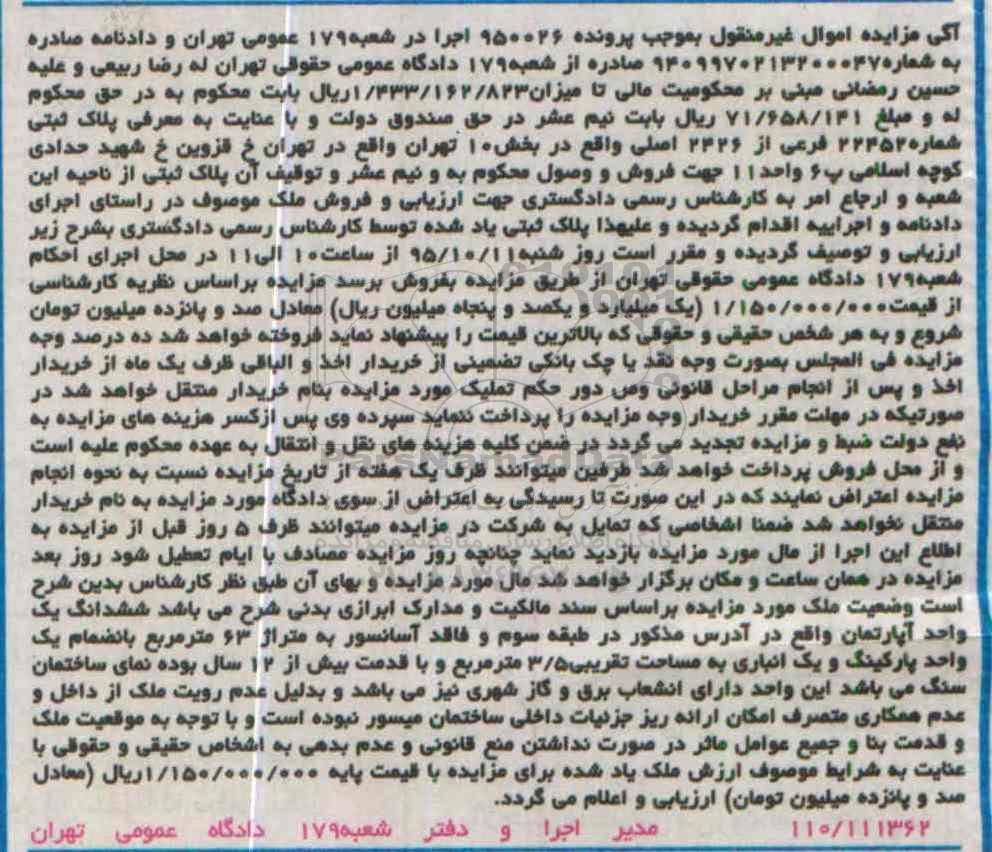 آگی مزایده اموال غیرمنقول بموجب پرونده ۹۵۰۰۲۶ اجرا در شعبه۱۷۹ عمومی تهران و دادنامه صادره
به شماره۹۴۰۹۹۷۰۲۱۳۲۰۰۰۴۷ صادره از شعبه۱۷۹ دادگاه عمومی حقوقی تهران له رضا ربیعی و علیه
حسین رمضانی مبنی بر محکومیت مالی تا میزان۱/۴۳۳/۱۶۲/۸۲۳ریال بابت محکوم به در حق محکوم
له و مبلغ ۷۱/۶۵۸/۱۴۱ ریال بابت نیم عشر در حق صندوق دولت و با عنایت به معرفی پلاک ثبتی
شماره۲۲۴۵۲ فرعی از ۲۴۲۶ اصلی واقع در بخش۱۰ تهران واقع در تهران خ قزوین خ شهید حدادی
کوچه اسلامی پ۶ واحد۱۱ جهت فروش و وصول محکوم به و نیم عشر و توقیف آن پلاک ثبتی از ناحیه این
شعبه و ارجاع امر به کارشناس رسمی دادگستری جهت ارزیابی و فروش ملک موصوف در راستای اجرای
دادنامه و اجراییه اقدام گردیده و علیهذا پلاک ثبتی یاد شده توسط کارشناس رسمی دادگستری بشرح زیر
ارزیابی و توصیف گردیده و مقرر است روز شنبه۹۵/۱۰/۱۱ از ساعت۱۰ الی۱۱ در محل اجرای احکام
شعبه۱۷۹ دادگاه عمومی حقوقی تهران از طریق مزایده بفروش برسد مزایده براساس نظریه کارشناسی
از قیمت۱/۱۵۰/۰۰۰/۰۰۰ (یک میلیارد و یکصد و پنجاه میلیون ریال) معادل صد و پانزده میلیون تومان
شروع و به هر شخص حقیقی و حقوقی که بالاترین قیمت را پیشنهاد نماید فروخته خواهد شد ده درصد وجه
مزایده فی المجلس بصورت وجه نقد یا چک بانکی تضمینی از خریدار اخذ و الباقی ظرف یک ماه از خریدار
اخذ و پس از انجام مراحل قانونی وص دور حکم تملیک مورد مزایده بنام خریدار منتقل خواهد شد در
صورتیکه در مهلت مقرر خریدار وجه مزایده را پرداخت ننماید سپرده وی پس ازکسر هزینه های مزایده به
نفع دولت ضبط و مزایده تجدید می گردد در ضمن کلیه هزینه های نقل و انتقال به عهده محکوم علیه است
و از محل فروش پرداخت خواهد شد طرفین میتوانند ظرف یک هفته از تاریخ مزایده نسبت به نحوه انجام
مزایده اعتراض نمایند که در این صورت تا رسیدگی به اعتراض از سوی دادگاه مورد مزایده به نام خریدار
منتقل نخواهد شد ضمنا اشخاصی که تمایل به شرکت در مزایده میتوانند ظرف ۵ روز قبل از مزایده به
اطلاع این اجرا از مال مورد مزایده بازدید نماید چنانچه روز مزایده مصادف با ایام تعطیل شود روز بعد
مزایده در همان ساعت و مکان برگزار خواهد شد مال مورد مزایده و بهای آن طبق نظر کارشناس بدین شرح
است وضعیت ملک مورد مزایده براساس سند مالکیت و مدارک ابرازی بدنی شرح می باشد ششدانگ یک
واحد آپارتمان واقع در آدرس مذکور در طبقه سوم و فاقد آسانسور به متراژ ۶۳ مترمربع بانضمام یک
واحد پارکینگ و یک انباری به مساحت تقریبی۳/۵ مترمربع و با قدمت بیش از ۱۲ سال بوده نمای ساختمان
سنگ می باشد این واحد دارای انشعاب برق و گاز شهری نیز می باشد و بدلیل عدم رویت ملک از داخل و
عدم همکاری متصرف امکان ارائه ریز جزئیات داخلی ساختمان میسور نبوده است و با توجه به موقعیت ملک
و قدمت بنا و جمیع عوامل ماثر در صورت نداشتن منع قانونی و عدم بدهی به اشخاص حقیقی و حقوقی با
عنایت به شرایط موصوف ارزش ملک یاد شده برای مزایده با قیمت پایه ۱/۱۵۰/۰۰۰/۰۰۰ریال (معادل
صد و پانزده میلیون تومان) ارزیابی و اعلام می گردد.
۱۱۰/۱۱۱۳۶۲ مدیر اجرا و دفتر شعبه۱۷۹ دادگاه عمومی تهران